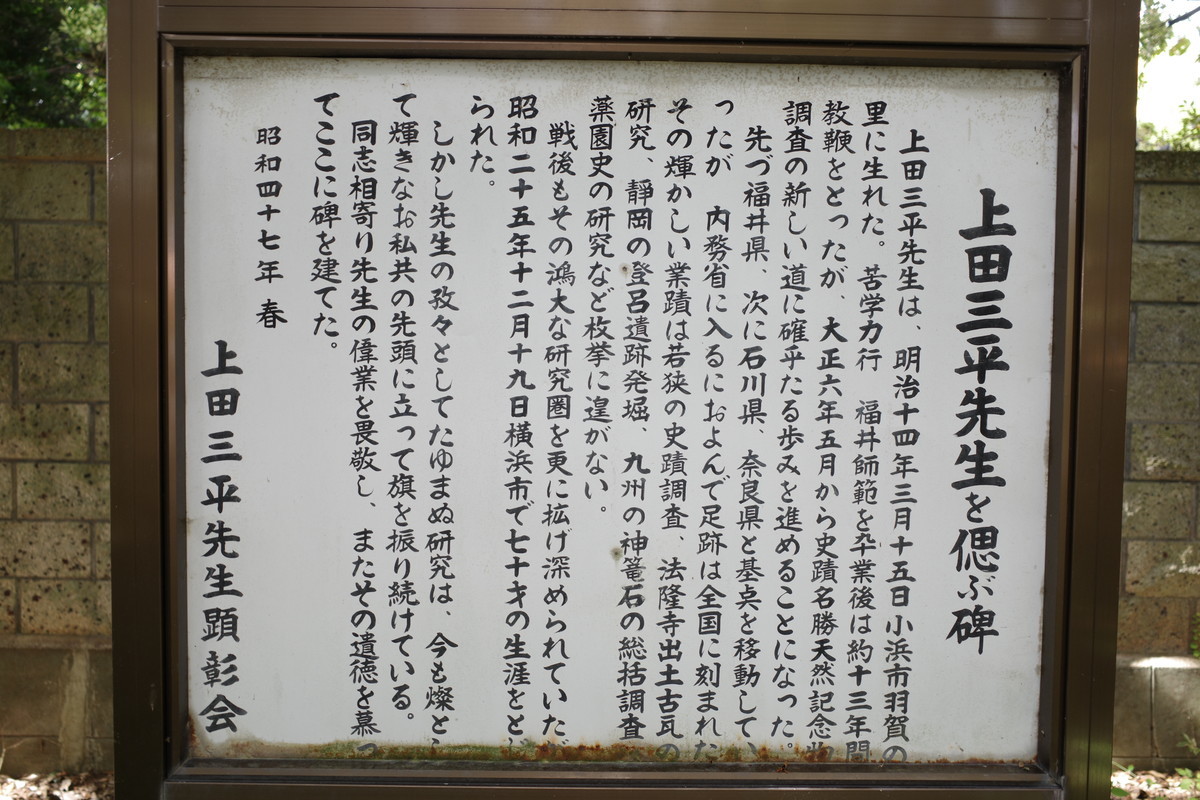 上田三平先生を偲ぶ碑
上田三平先生は、明治十四年三月十五日小浜市羽賀の
里に生れた。苦学力行　福井師範を卒業後は約十三年間
教鞭をとったが、大正六年五月から史蹟名勝天然記念物
調査の新しい道に確乎たる歩みを進めることになった。
先づ福井県、次に石川県、奈良県と基点を移動してい
ったが　内務省に入るにおよんで足跡は全国に刻まれた
その輝かしい業蹟は若狭の史蹟調査、法隆寺出土古瓦の
研究、静岡の登呂遺跡発堀、九州の神篭石の総括調査
薬園史の研究など枚挙に遑がない。
戦後もその鴻大な研究圏を更に拡げ深められていたが
昭和二十五年十二月十九日横浜市で七十才の生涯をとじ
られた。
しかし先生の孜々としてたゆまぬ研究は、今も燦とし
て輝きなお私共の先頭に立って旗を振り続けている。
同志相寄り先生の偉業を畏敬し、またその遺徳を慕っ
てここに碑を建てた。
昭和四十七年　春
上田三平先生顕彰会